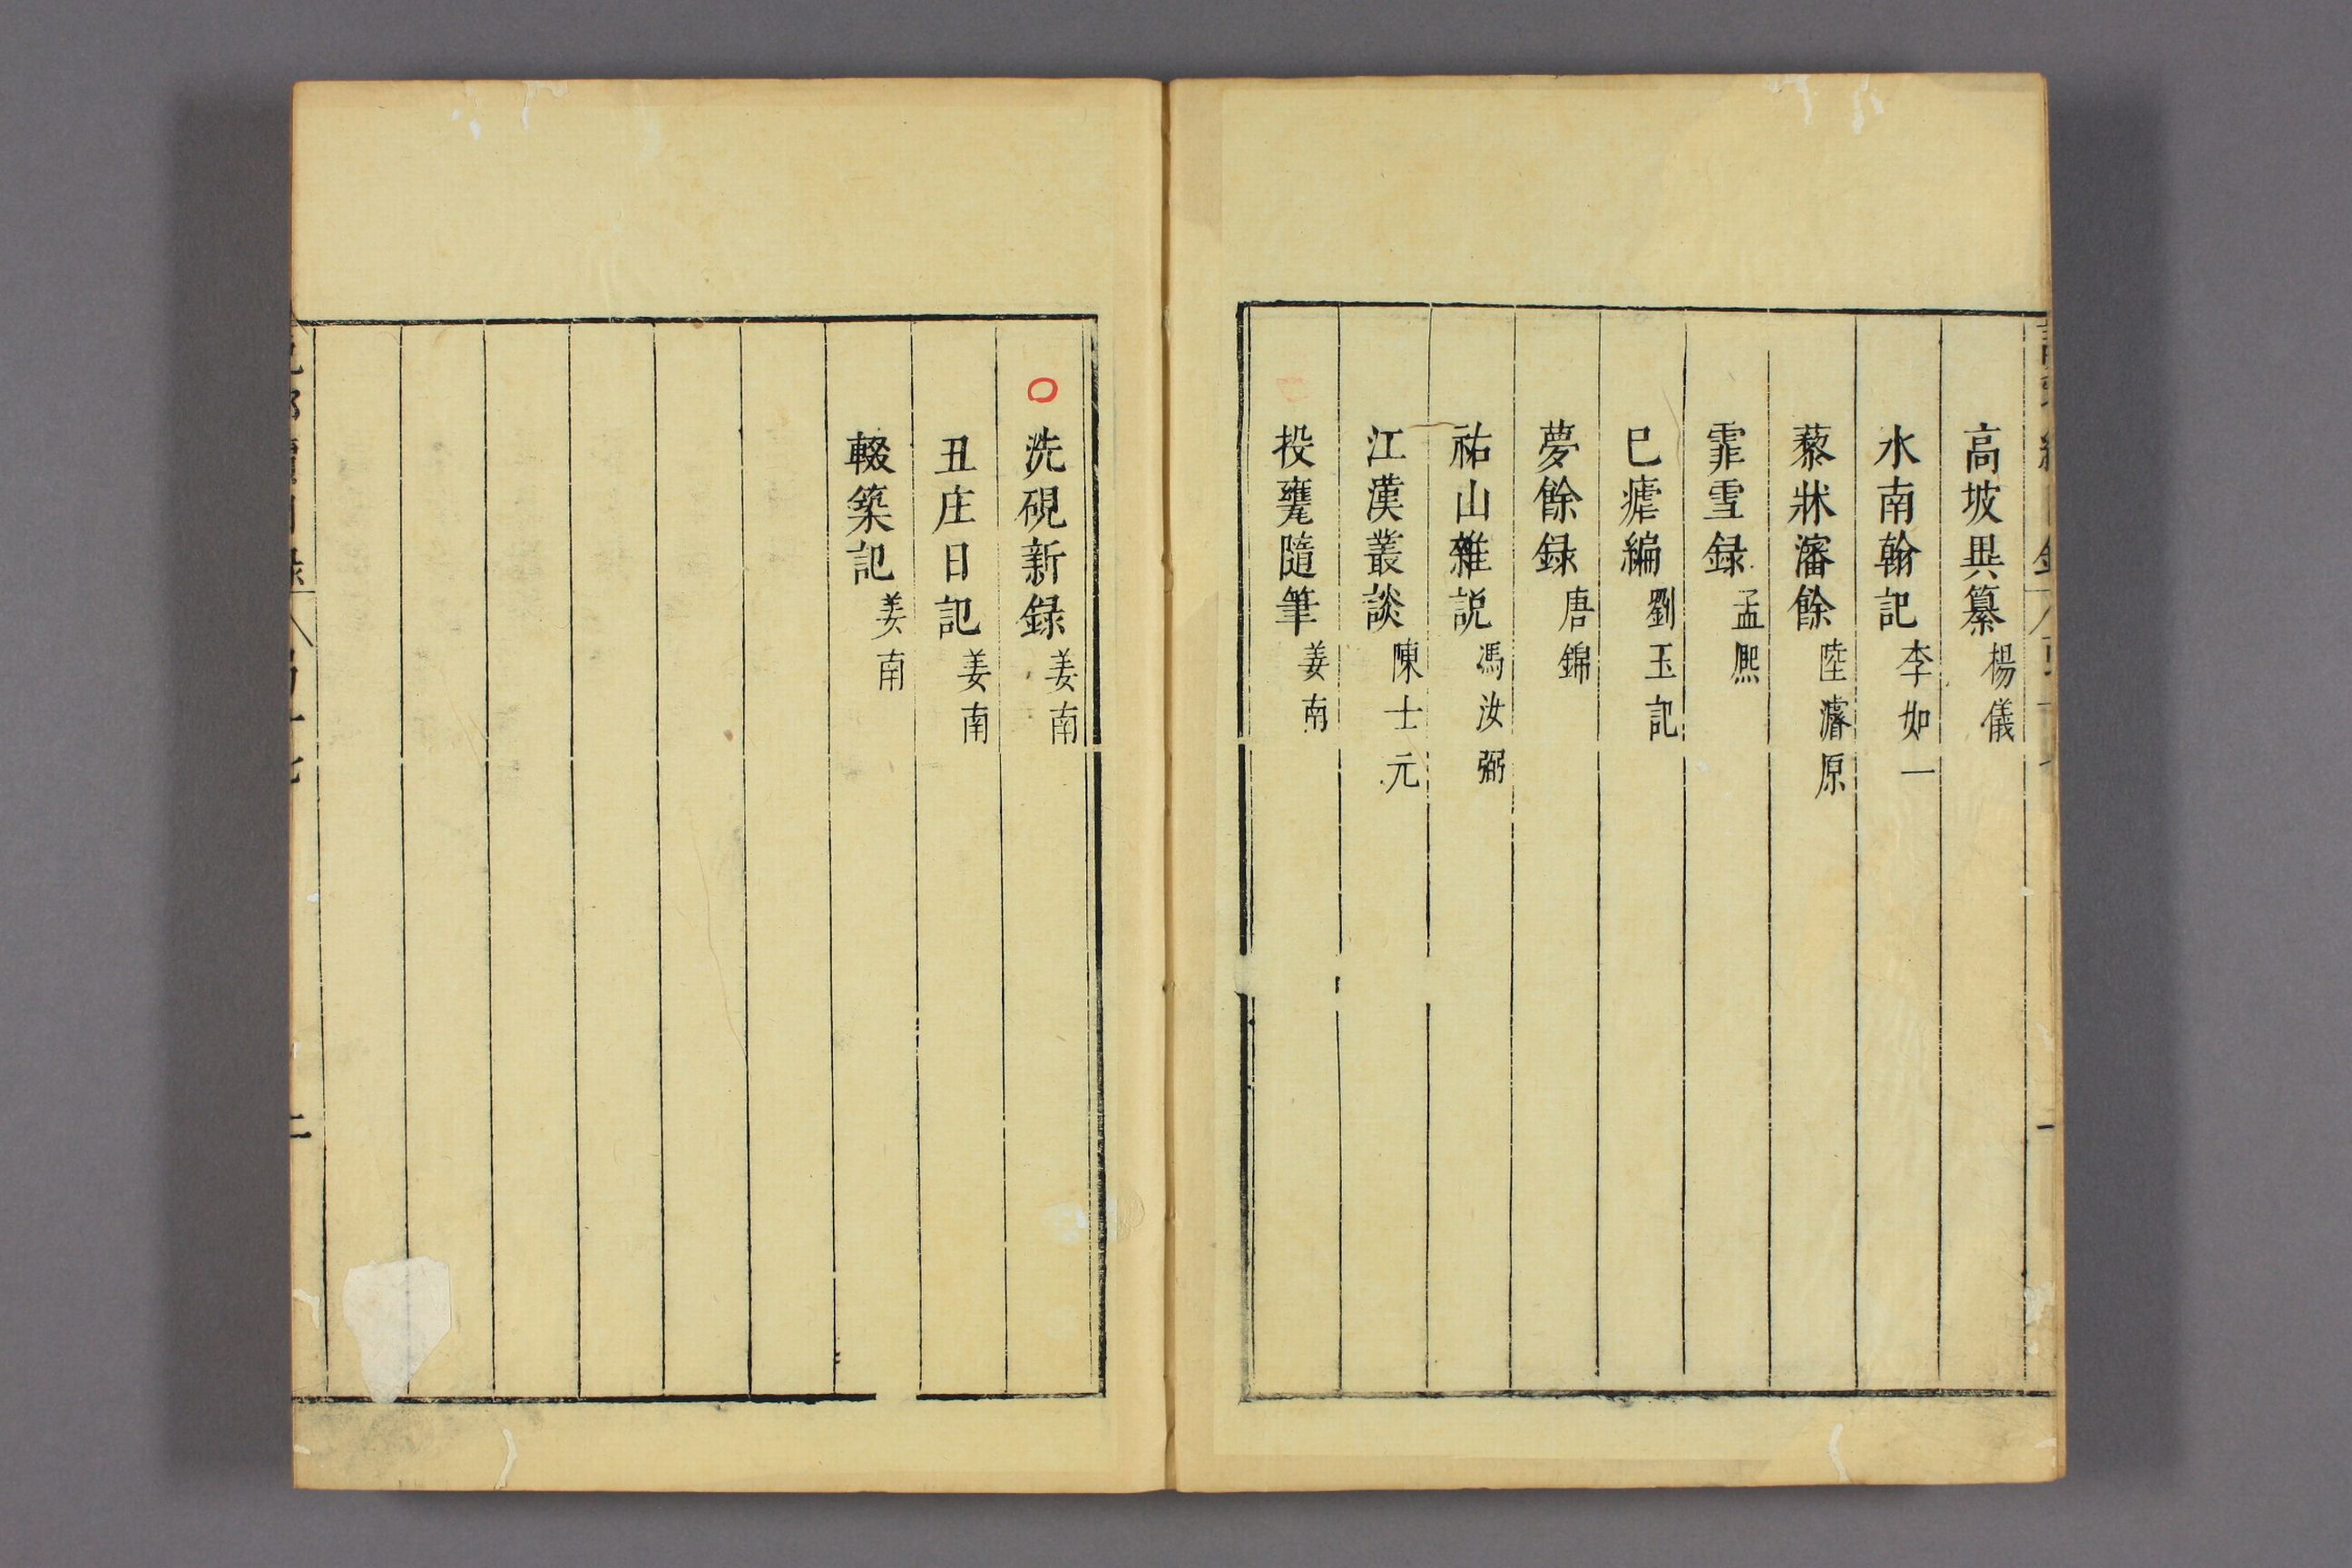 高坡異纂 楊儀
水南翰記 李如一
藜牀瀋餘 陸濬原
霏雪録 孟熈
已瘧編 劉玉記
夢餘録 唐錦
祐山雜説 馮汝弼
江漢叢談 陳士元
投甕隨筆 姜南
洗硯新録 姜南
丑庄日記 姜南
輟築記 姜南
二